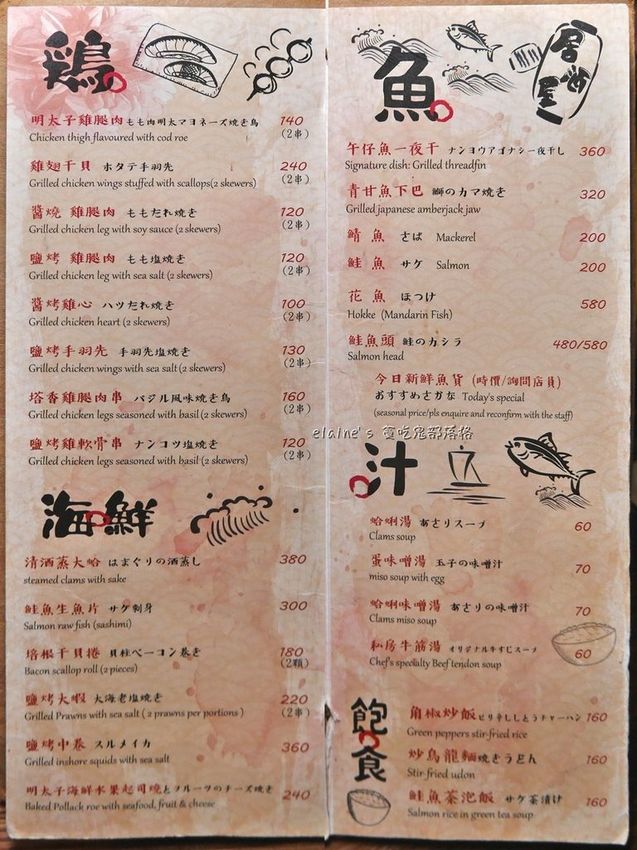 鶏
明太子雞腿肉 もも肉明太マヨネーズ焼き鳥 140
Chicken thigh flavoured with cod roe (2串)
雞翅干貝 ホタテ手羽先 240
Grilled chicken wings stuffed with scallops(2 skewers) (2串)
醬燒 雞腿肉 ももたれ焼き 120
Grilled chicken leg with soy sauce (2 skewers) (2串)
鹽烤 雞腿肉 もも塩焼き 120
Grilled chicken leg with sea salt (2 skewers) (2串)
醬烤雞心 ハツたれ焼き 100
Grilled chicken heart (2 skewers) (2串)
鹽烤手羽先 手羽先塩焼き 130
Grilled chicken wings with sea salt (2 skewers) (2串)
塔香雞腿肉串 バジル風味焼き鳥 160
Grilled chicken legs seasoned with basil (2 skewers) (2串)
鹽烤雞軟骨串 ナンコツ塩焼き 120
Grilled chicken legs seasoned with basil (2 skewers) (2串)
海鮮
清酒蒸大蛤 はまぐりの酒蒸し 380
steamed clams with sake
鮭魚生魚片 サケ刺身 300
Salmon raw fish (sashimi)
培根干貝捲 貝柱ベーコン巻き 180
Bacon scallop roll (2 pieces) (2顆)
鹽烤大蝦 大海老塩焼き 220
Grilled Prawns with sea salt ( 2 prawns per portions ) (2串)
鹽烤中卷 スルメイカ 360
Grilled inshore squids with sea salt
明太子海鮮水果起司燒 とフルーツのチーズ焼き 240
Baked Pollack roe with seafood, fruit & cheese
魚
居酒屋
午仔魚一夜干 ナンヨウアゴナシ一夜干し 360
Signature dish: Grilled threadfin
青甘魚下巴 鰤のカマ焼き 320
Grilled japanese amberjack jaw
鯖魚 さば Mackerel 200
鮭魚 サケ Salmon 200
花魚 ほつけ 580
Hokke (Mandarin Fish)
鮭魚頭 鮭のカシラ 480/580
Salmon head
今日新鮮魚貨 (時價/詢問店員)
おすすめさかな Today's special
(seasonal price/pls enquire and reconfirm with the staff)
elaine's 愛吃鬼部落格
汁
蛤蜊湯 あさりスープ 60
Clams soup
蛋味噌湯 玉子の味噌汁 70
miso soup with egg
蛤蜊味噌湯 あさりの味噌汁 70
Clams miso soup
私房牛筋湯 オリジナル牛すじスープ 60
Chef's specialty Beef tendon soup
飽食
角椒炒飯 ピリ辛ししとうチャーハン 160
Green peppers stir-fried rice
炒烏龍麵 焼きうどん 160
Stir-fried udon
鮭魚茶泡飯 サケ茶漬け 160
Salmon rice in green tea soup